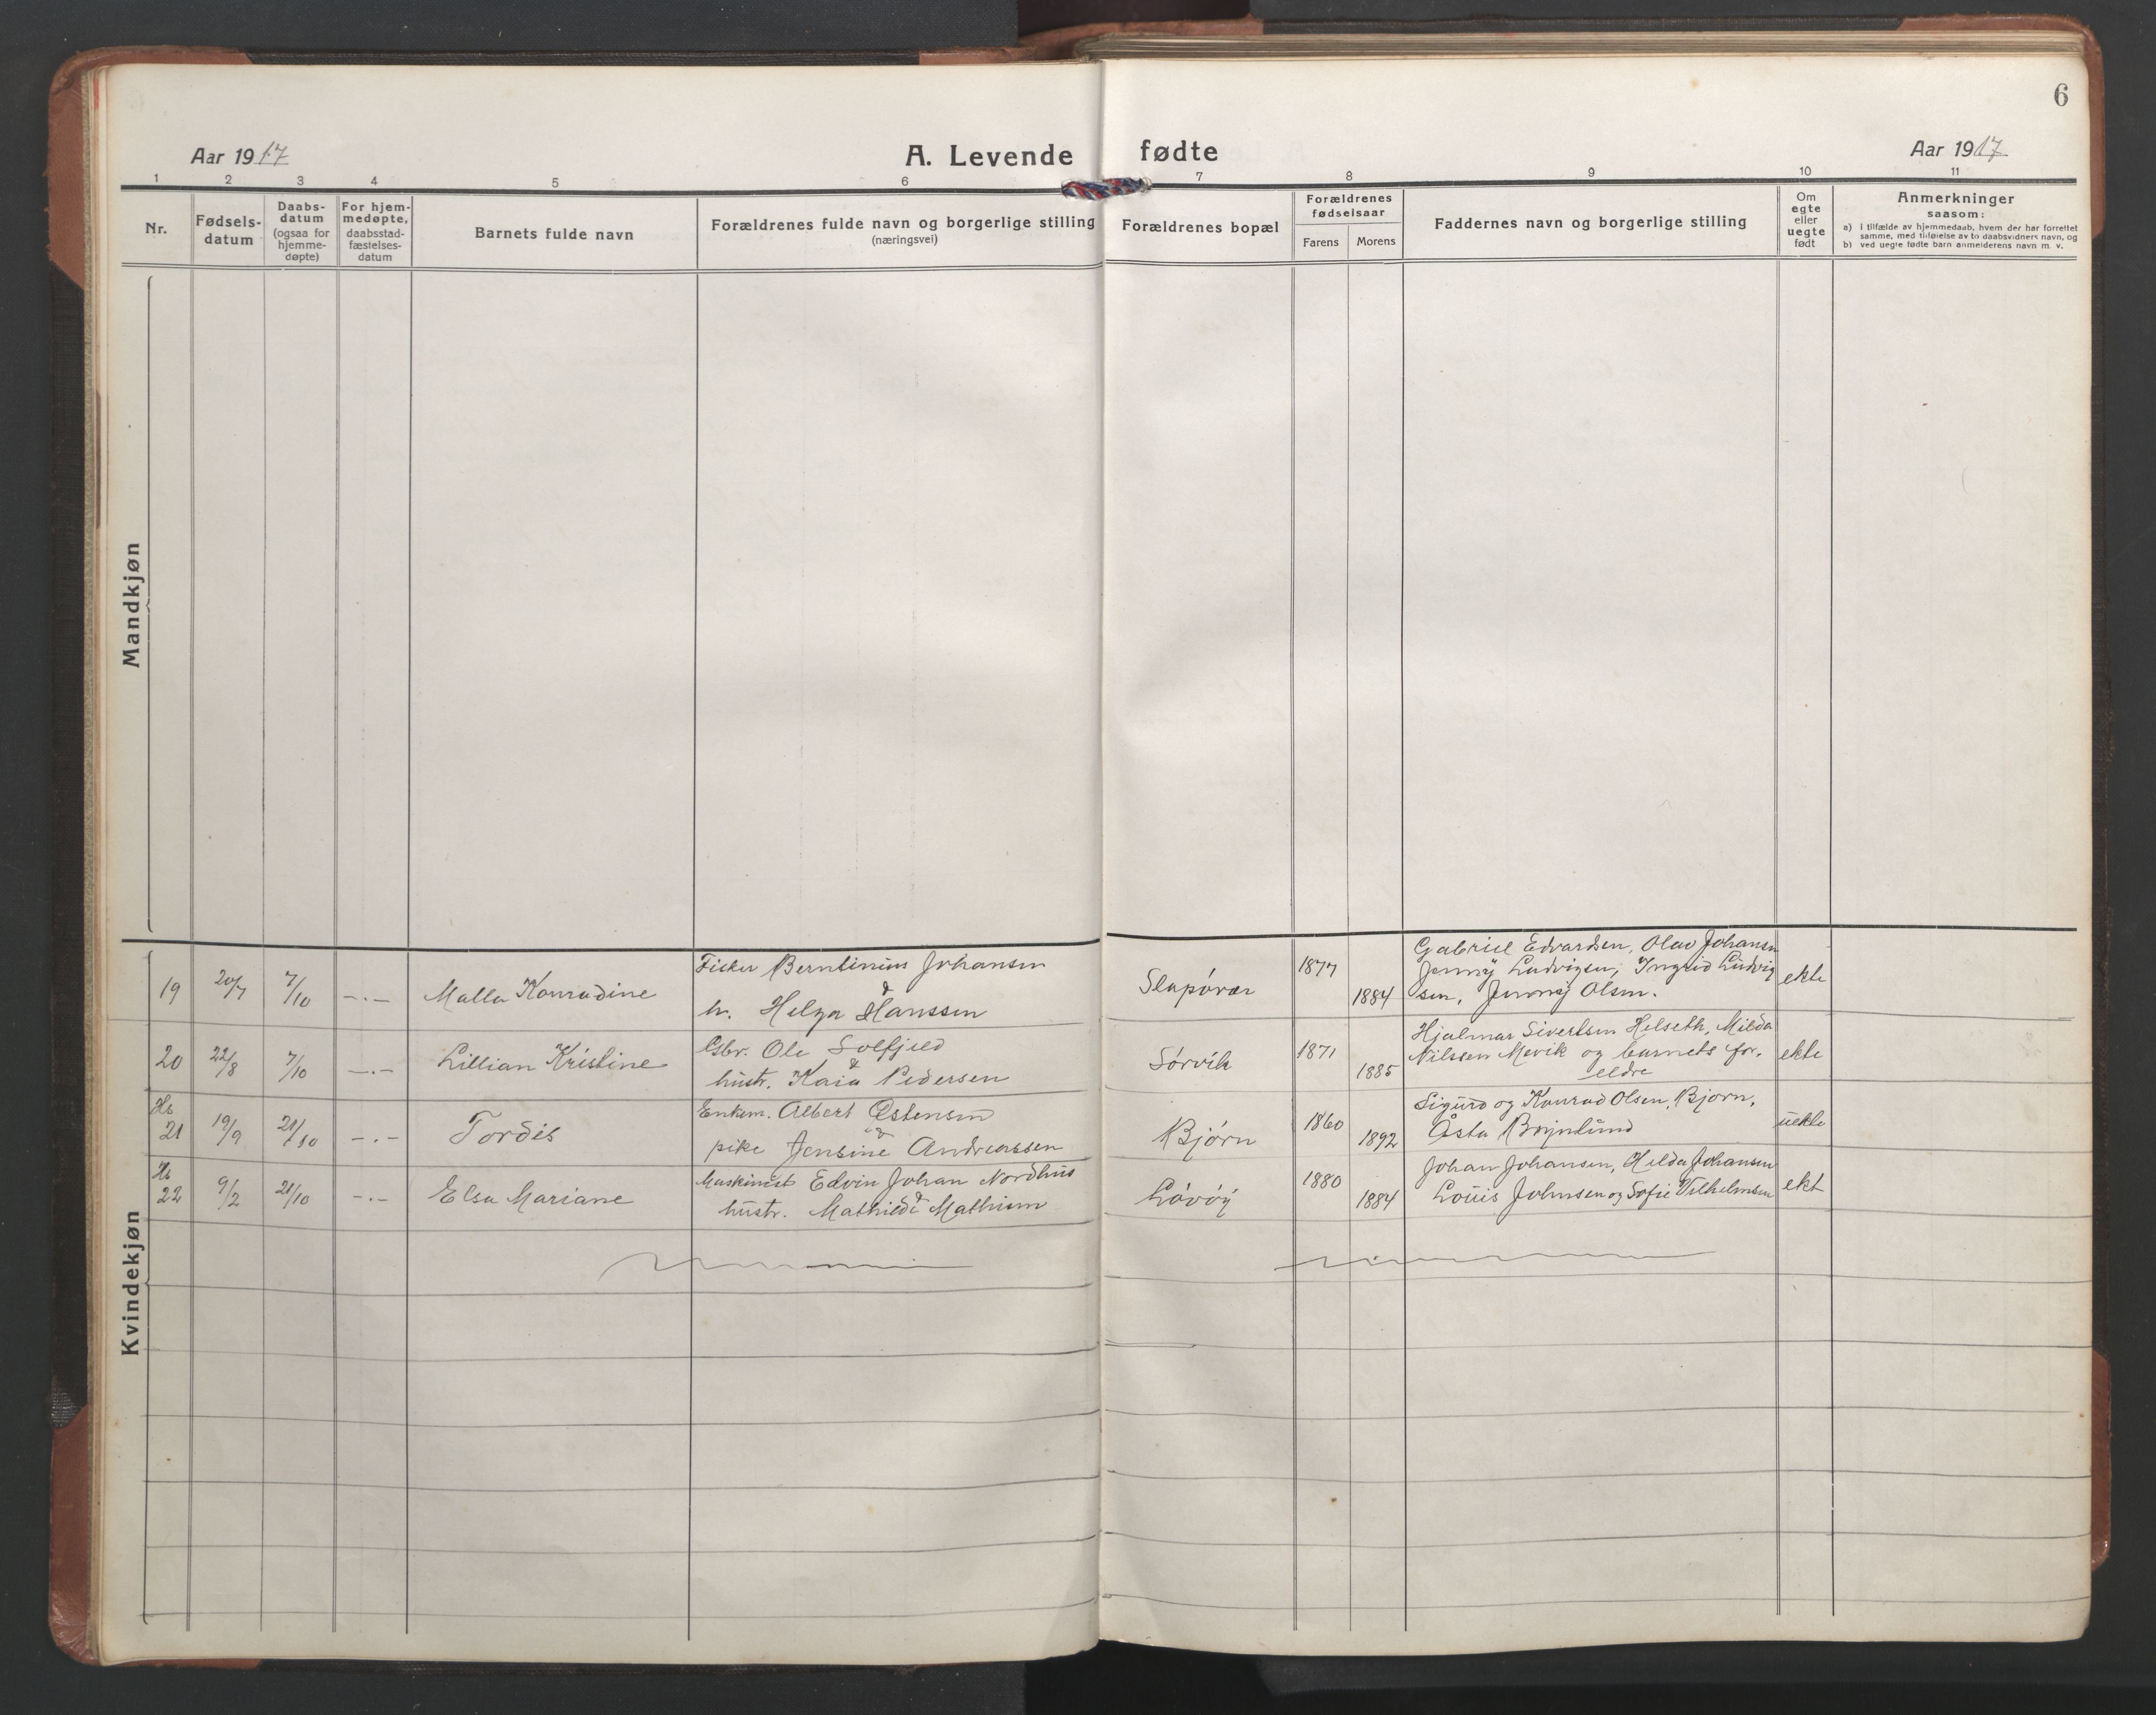 6
Aar 1917
A. Levende fødte
Aar 1917
1 2 3 4 5 6 7 8 9 10 11
Nr.
Fødsels-
datum
Daabs-
datum
(ogsaa for
hjemme-
døpte)
For hjem-
medøpte,
daabsstad-
fæstelses-
datum
Barnets fulde navn
Forældrenes fulde navn og borgerlige stilling
(næringsvei)
Forældrenes bopæl
Forældrenes
fødselsaar
Farens Morens
Faddernes navn og borgerlige stilling
Om
egte
eller
uegte
født
Anmerkninger
saasom:
a) i tilfælde av hjemmedaab, hvem der har forrettet
samme, med tilføielse av to daabsvidners navn, og
b) ved uegte fødte barn anmelderens navn m. v.
Mandkjøn
Kvindekjøn
19 20/7 7/10 -.- Malla Konradine
Fisker Berntinius Johansen
&
h. Helga Hanssen
1877 1884
Gabriel Edvardsen, Olav Johansen
Jenny Ludvigsen, Ingrid Ludvig
sen, Jenny Olsen.
ekte
20 22/8 7/10 -.- Lillian Kristine
Gbr. Ole Solfjeld
&
hustr. Kaia Pedersen
Sørvik
1871 1885
Hjalmar Sivertsen Helseth, Milda
Nilssen Mevik og barnets for.
eldre
ekte
Hs
21 19/9 21/10 -.- Tordis
Enkem. Albert Østensen
&
pike Jensine Andreassen
Bjørn
1860 1892
Sigurd og Konrad Olsen, Bjørn,
Åsta Brynlund
uekte
Hs
22 9/2 21/10 -.- Elsa Mariane
Maskinist Edvin Johan Nordhus
&
hustr. Mathilde Mathisen
Løvøy
1880 1884
Johan Johansen, Hilda Johansen
Louis Johnsen og Sofie Vilhelmsen
ekt